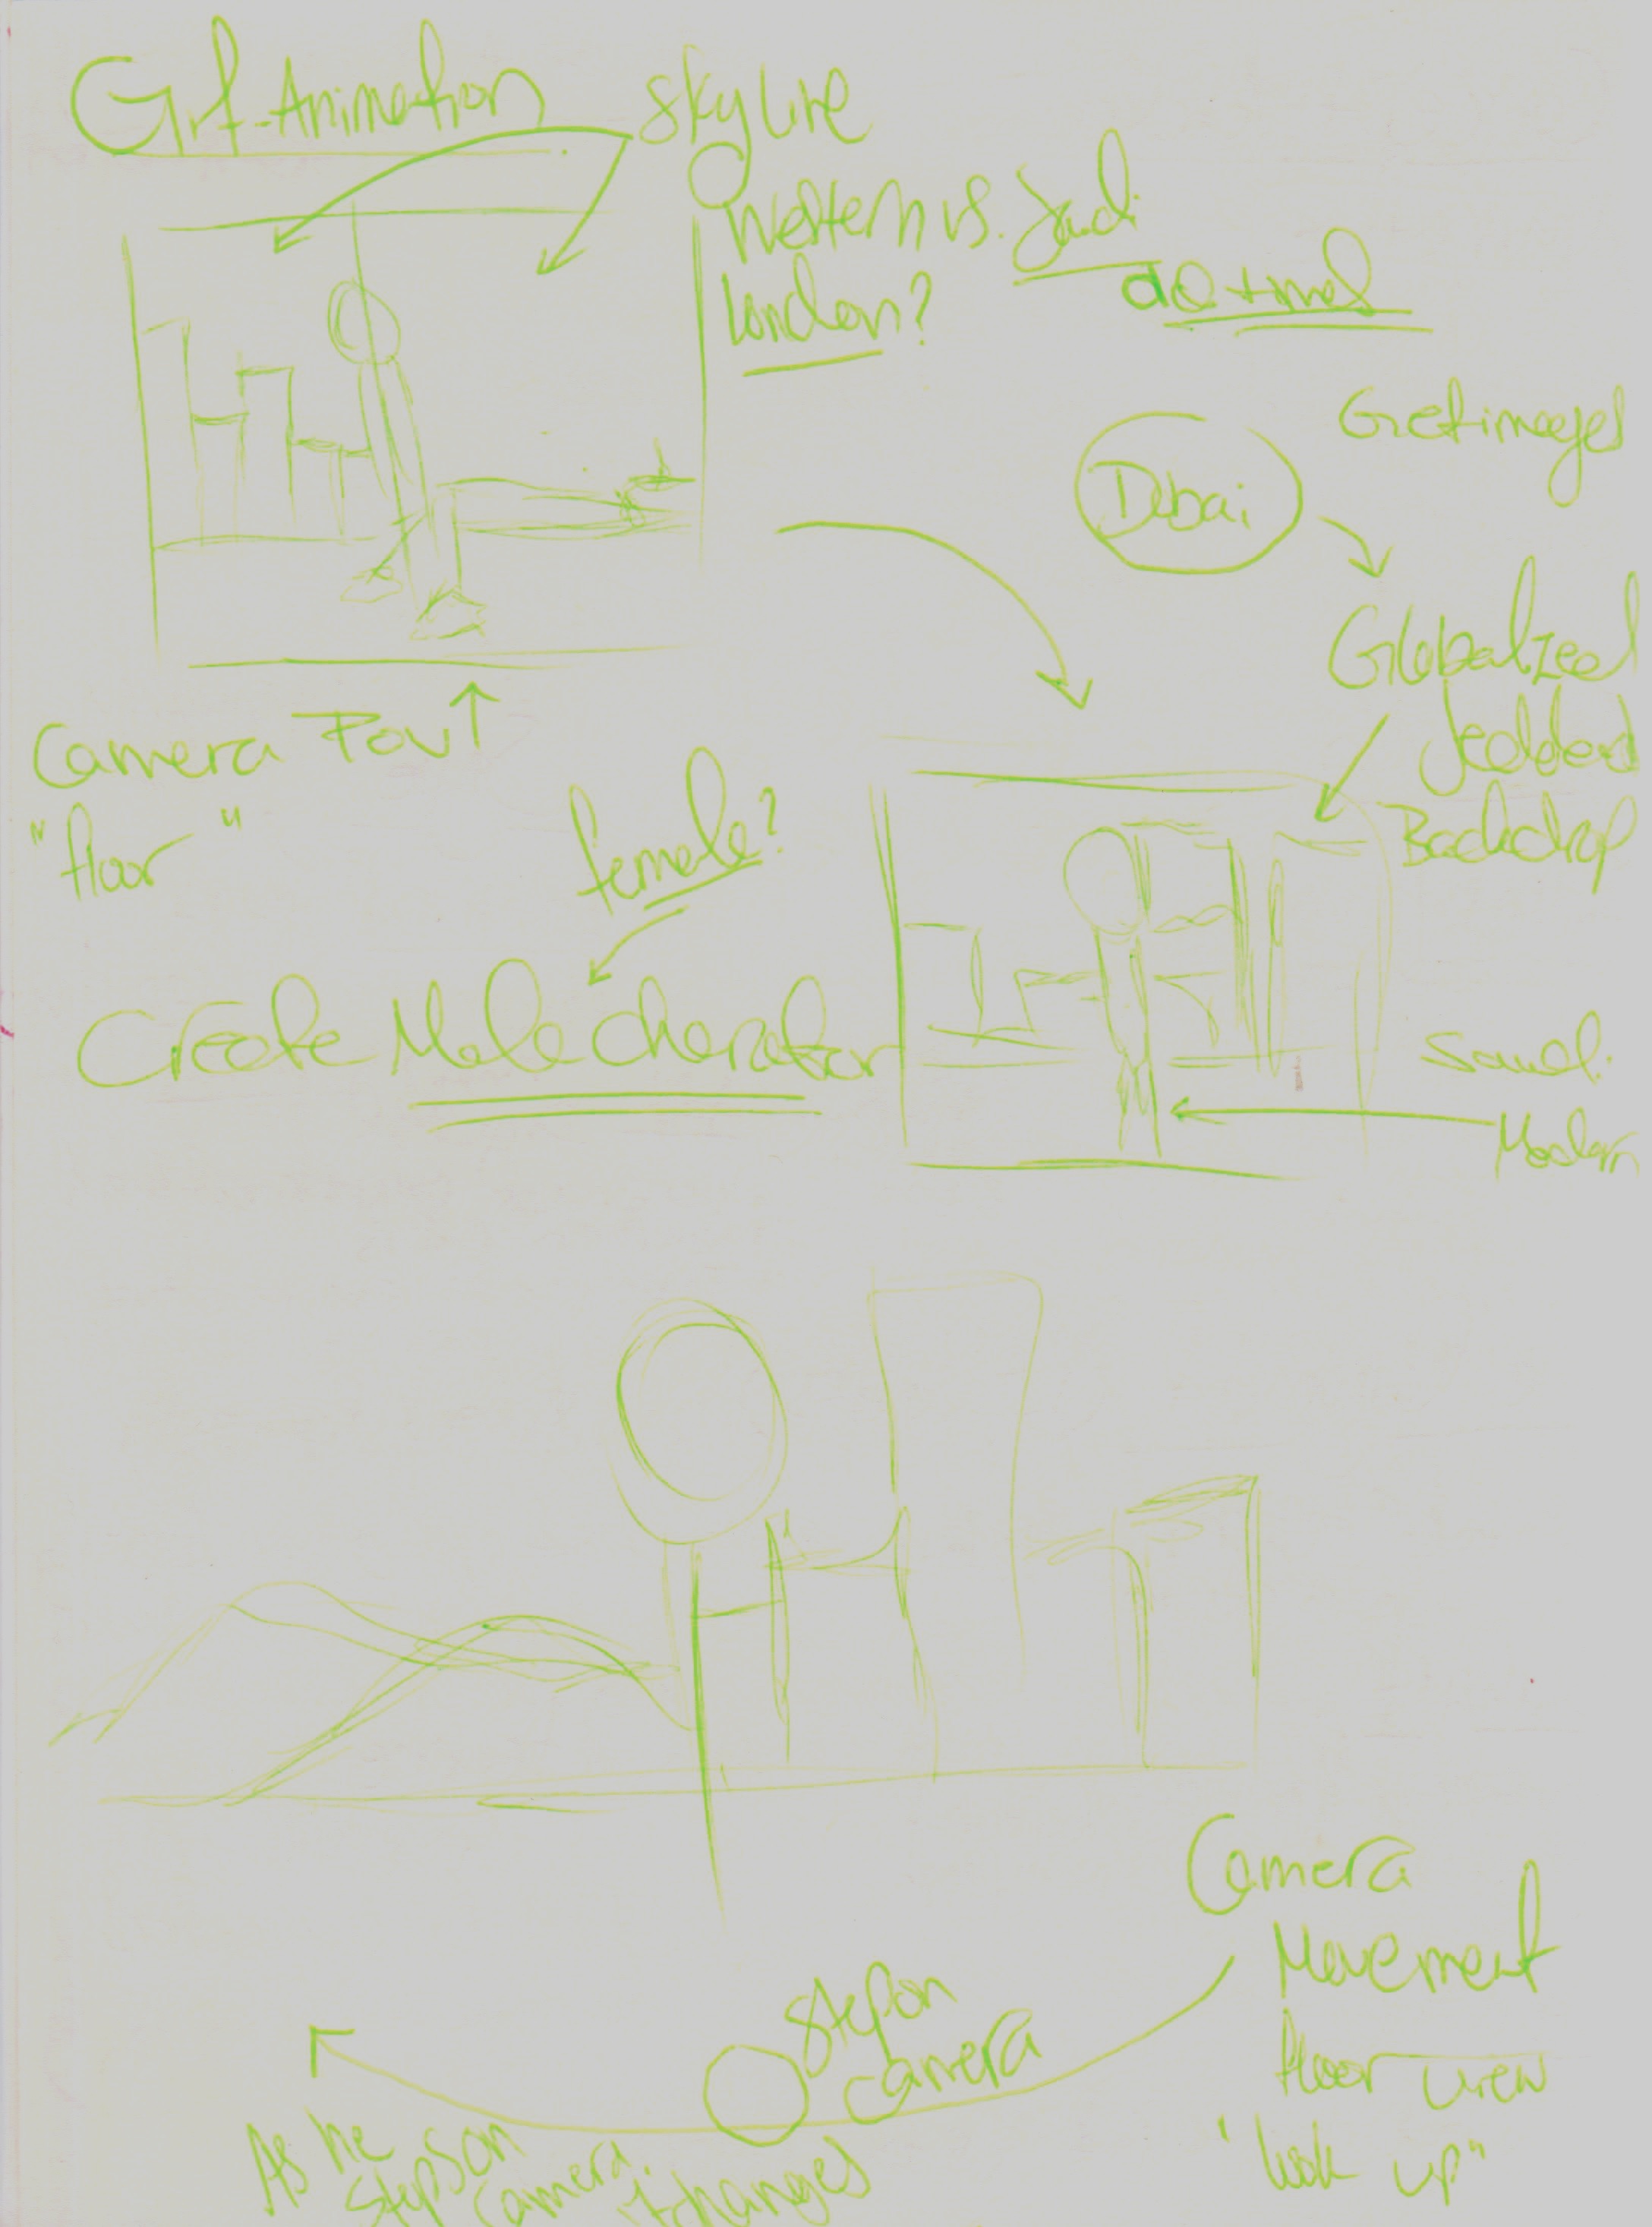 Gif-Animation
Skyline
Western vs. Saudi
London?
Get images
Dubai
Globalized
Jeddah
Backdrop
Camera POV
"floor"
female?
Create Male Character
Saudi
Modern
Camera
Movement
floor view
"look up"
Step on
camera
As he
steps on
camera.
it changes